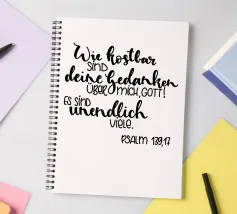 Wie kostbar
SIND
deine Gedanken
ÜBER mich, GOTT!
ES SIND
unendlich
VIELE.
PSALM 139,17